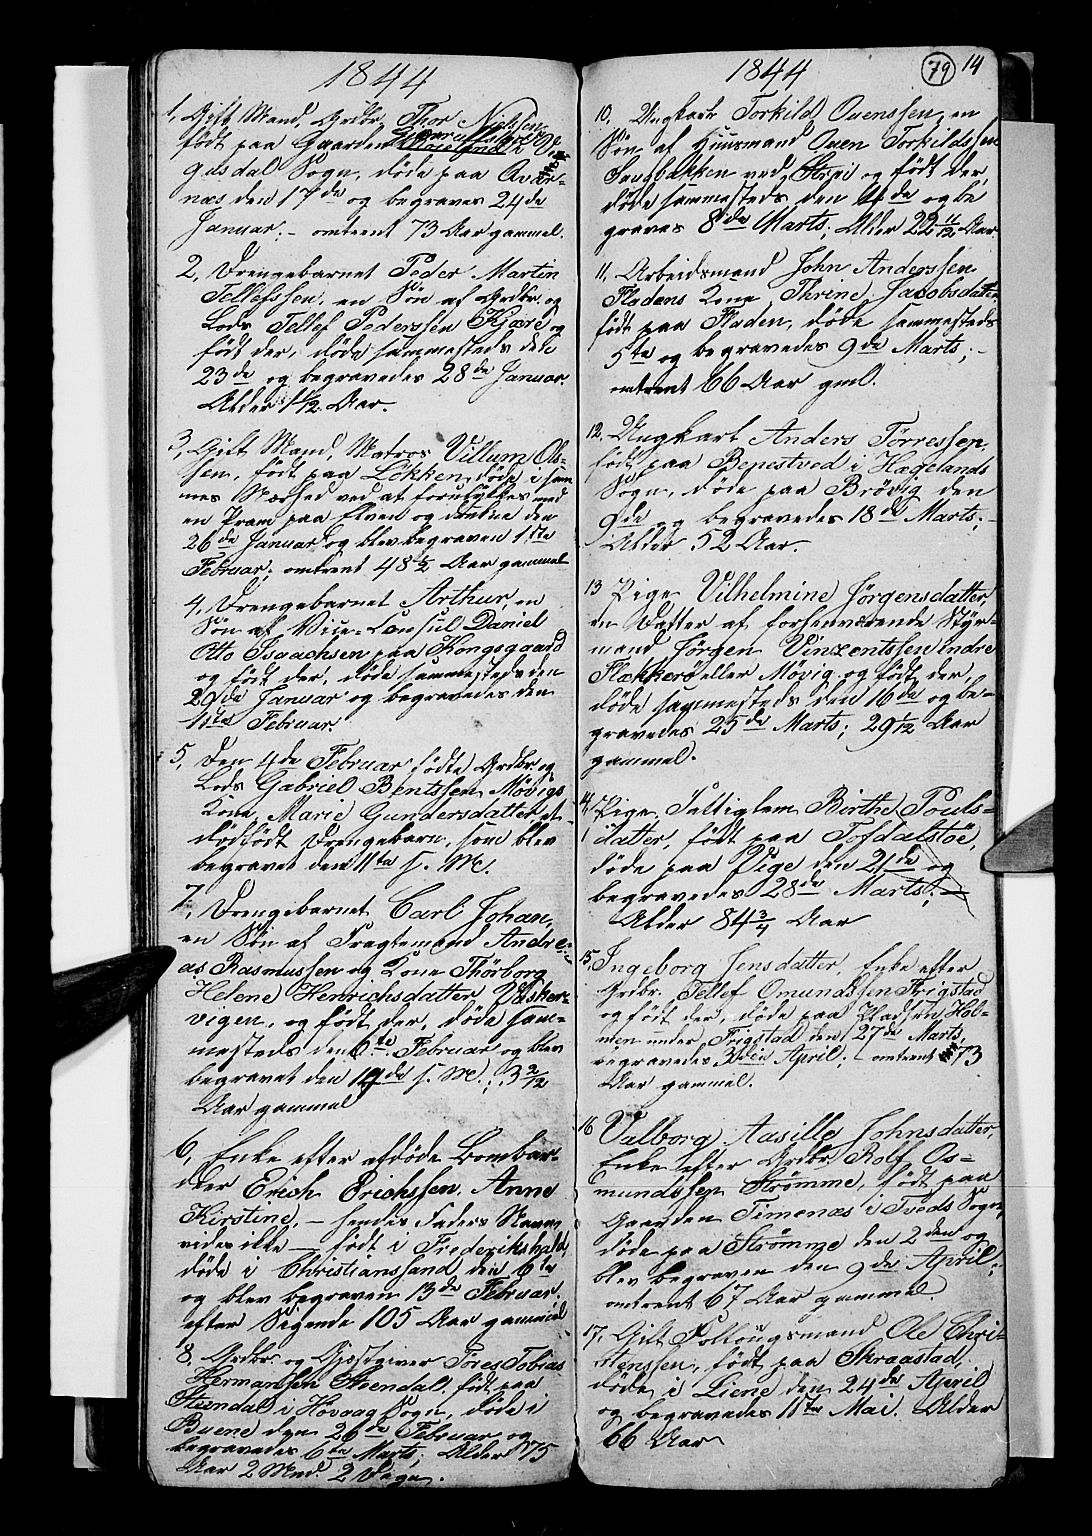 1844
1, Gift Mand, Grdbr. Thor Nielssen
født paa Gaarden i Ve-
gusdal Sogn, døde paa Avar-
næs den 17de og begraves 24de
Januar; - omtrent 73 Aar gammel.
2, Drengebarnet Peder Martin
Tellefssen, en Søn af Grdbr. og
Lods Tellef Pederssen Kjære og
født der, døde sammesteds den
23de og begravedes 28de Januar.
Alder 1 1/12 Aar.
3, Gift Mand, Matros Villum Ols-
sen, født paa Løkken, døde i sam
mes Nærhed ved at forulykkes med
en Pram paa Elven og druknede den
26de Januar og blev begraven 1ste
Februar; omtrent 48 1/2 Aar gammel
4, Drengebarnet Arthur, en
Søn af Vice-Consul Daniel
Otto Isaachsen paa Kongsgaard
og født der, døde sammesteds den
29de Januar og begravedes den
11te Februar.
5, Den 4de Februar fødte Grdbr. og
Lods Gabriel Bentssen Møvigs
Kone, Marie Gundersdatter et
dødfødt Drengebarn, som blev
begravet den 11te s. M.
7, Drengebarnet Carl Johan,
en Søn af Fragtemand Andre-
as Rasmussen og Kone Thorborg
Helene Henrichsdatter, Vasker-
vigen, og født der, døde sam-
mesteds den 6te Februar og blev
begravet den 12de s. M.; 3 2/12
Aar gammel
6, Enke efter afdøde Bombar-
deer Erich Erichssen, Anne
Kirstine, - hendes Faders Navn
vides ikke - født i Frederikshald,
døde i Christianssand den 6te
og blev begraven 13de Februar.
efter Sigende 105 Aar gammel
8, Grdbr. og Gjæstgiver Tores Tobias
Hermanssen Steendal, født paa
Steendal i Høvaag Sogn, døde i
Buene den 26de Februar og
begravedes 6te Marts; Alder 75
Aar 2 Mnd. 2 Dage.
1844
79 14
10, Ungkarl Torkild Ouenssen, en
Søn af Huusmand Ouen Torkildssen
Saugbakken ved Strai og født der,
døde sammesteds den 4de og be
graves 8de Marts; Alder 22 4/12 Aar.
11, Arbeidsmand John Anderssen
Fladens Kone, Thrine Jacobsdatter
født paa Fladen, døde sammesteds
5te og begravedes 9de Marts; -
omtrent 66 Aar gml.
12, Ungkarl Anders Tørressen,
født paa Bepestved i Hægelands
Sogn, døde paa Brøvig den
9de og begravedes 18de Marts; -
Alder 52 Aar.
13 Pige Vilhelmine Jørgensdatter,
en Datter af forhenværende Styr-
mand Jørgen Vinzentssen Indre
Flekkerø eller Møvig og født der,
døde sammesteds den 16de og be-
gravedes 25de Marts; 29 1/12 Aar
gammel.
14, Pige, Fattiglem Birthe Pouls-
datter, født paa Tofdalstøe,
døde paa Vige den 21de og
begravedes 28de Marts; -
Alder 84 3/4 Aar
15, Ingeborg Jensdatter, Enke efter
Grdbr. Tellef Omundssen Frigstad
og født der, døde paa Pladsen Hol-
men under Frigstad den 27de Marts,
begravedes 3die April; - omtrent 73
Aar gammel.
16 Valborg Aasille Johnsdatter,
Enke efter Grdbr. Rolf Os-
mundssen Strømme, født paa
Gaarden Timenæs i Tveds Sogn,
døde paa Strømme den 2den og
blev begraven den 9de April;
omtrent 67 Aar gammel.
17, Gift Follougsmand Ole Chri-
stenssen, født paa Skraastad,
døde i Liene den 24de April
og begravedes 11te Mai. Alder
66 Aar